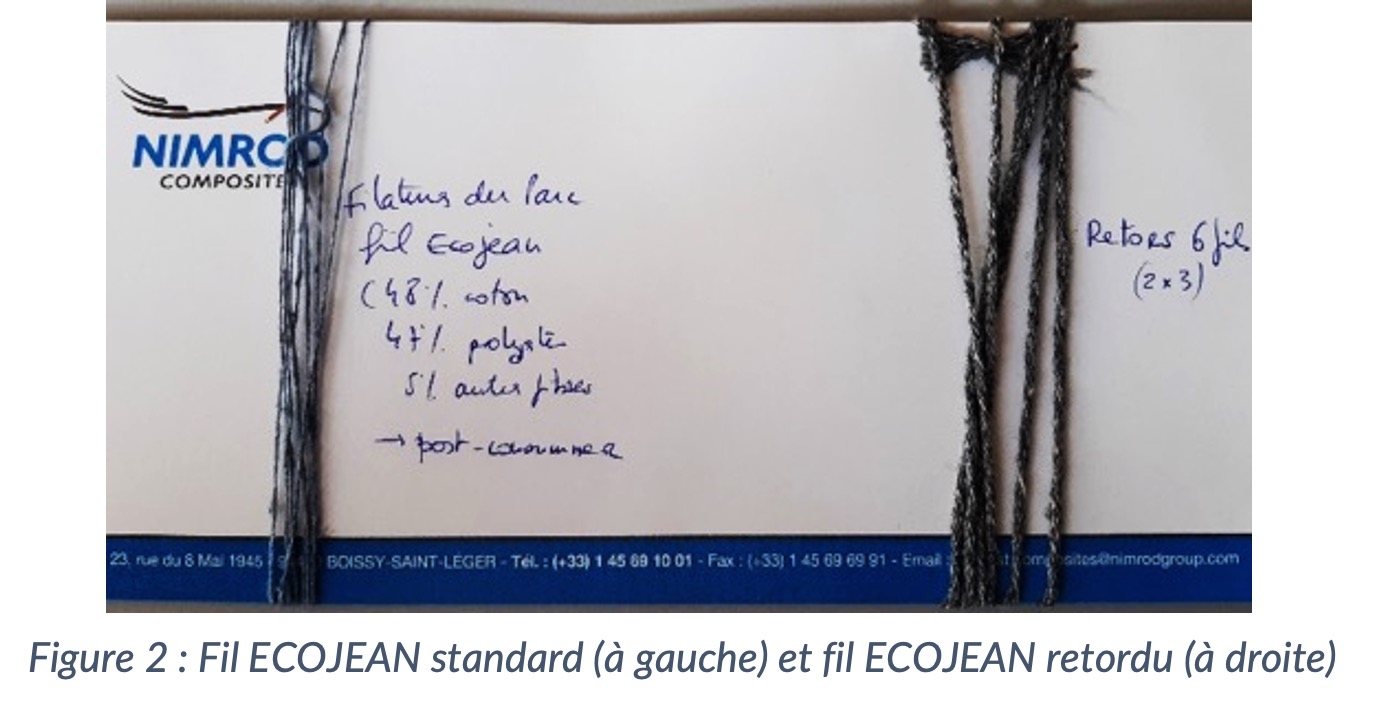 NIMROD
COMPOSITE
Filatures du Parc
fil Ecojean
(48% coton
47% polyester
5% autres fibres
→ post-consommer
Retors 6 fils
(2x3)
23, rue du 8 Mai 1945 BOISSY-SAINT-LÉGER - Tél. : (+33) 1 45 69 10 01 - Fax : (+33) 1 45 69 69 91 - Email : composites@nimrodgroup.com
Figure 2 : Fil ECOJEAN standard (à gauche) et fil ECOJEAN retordu (à droite)